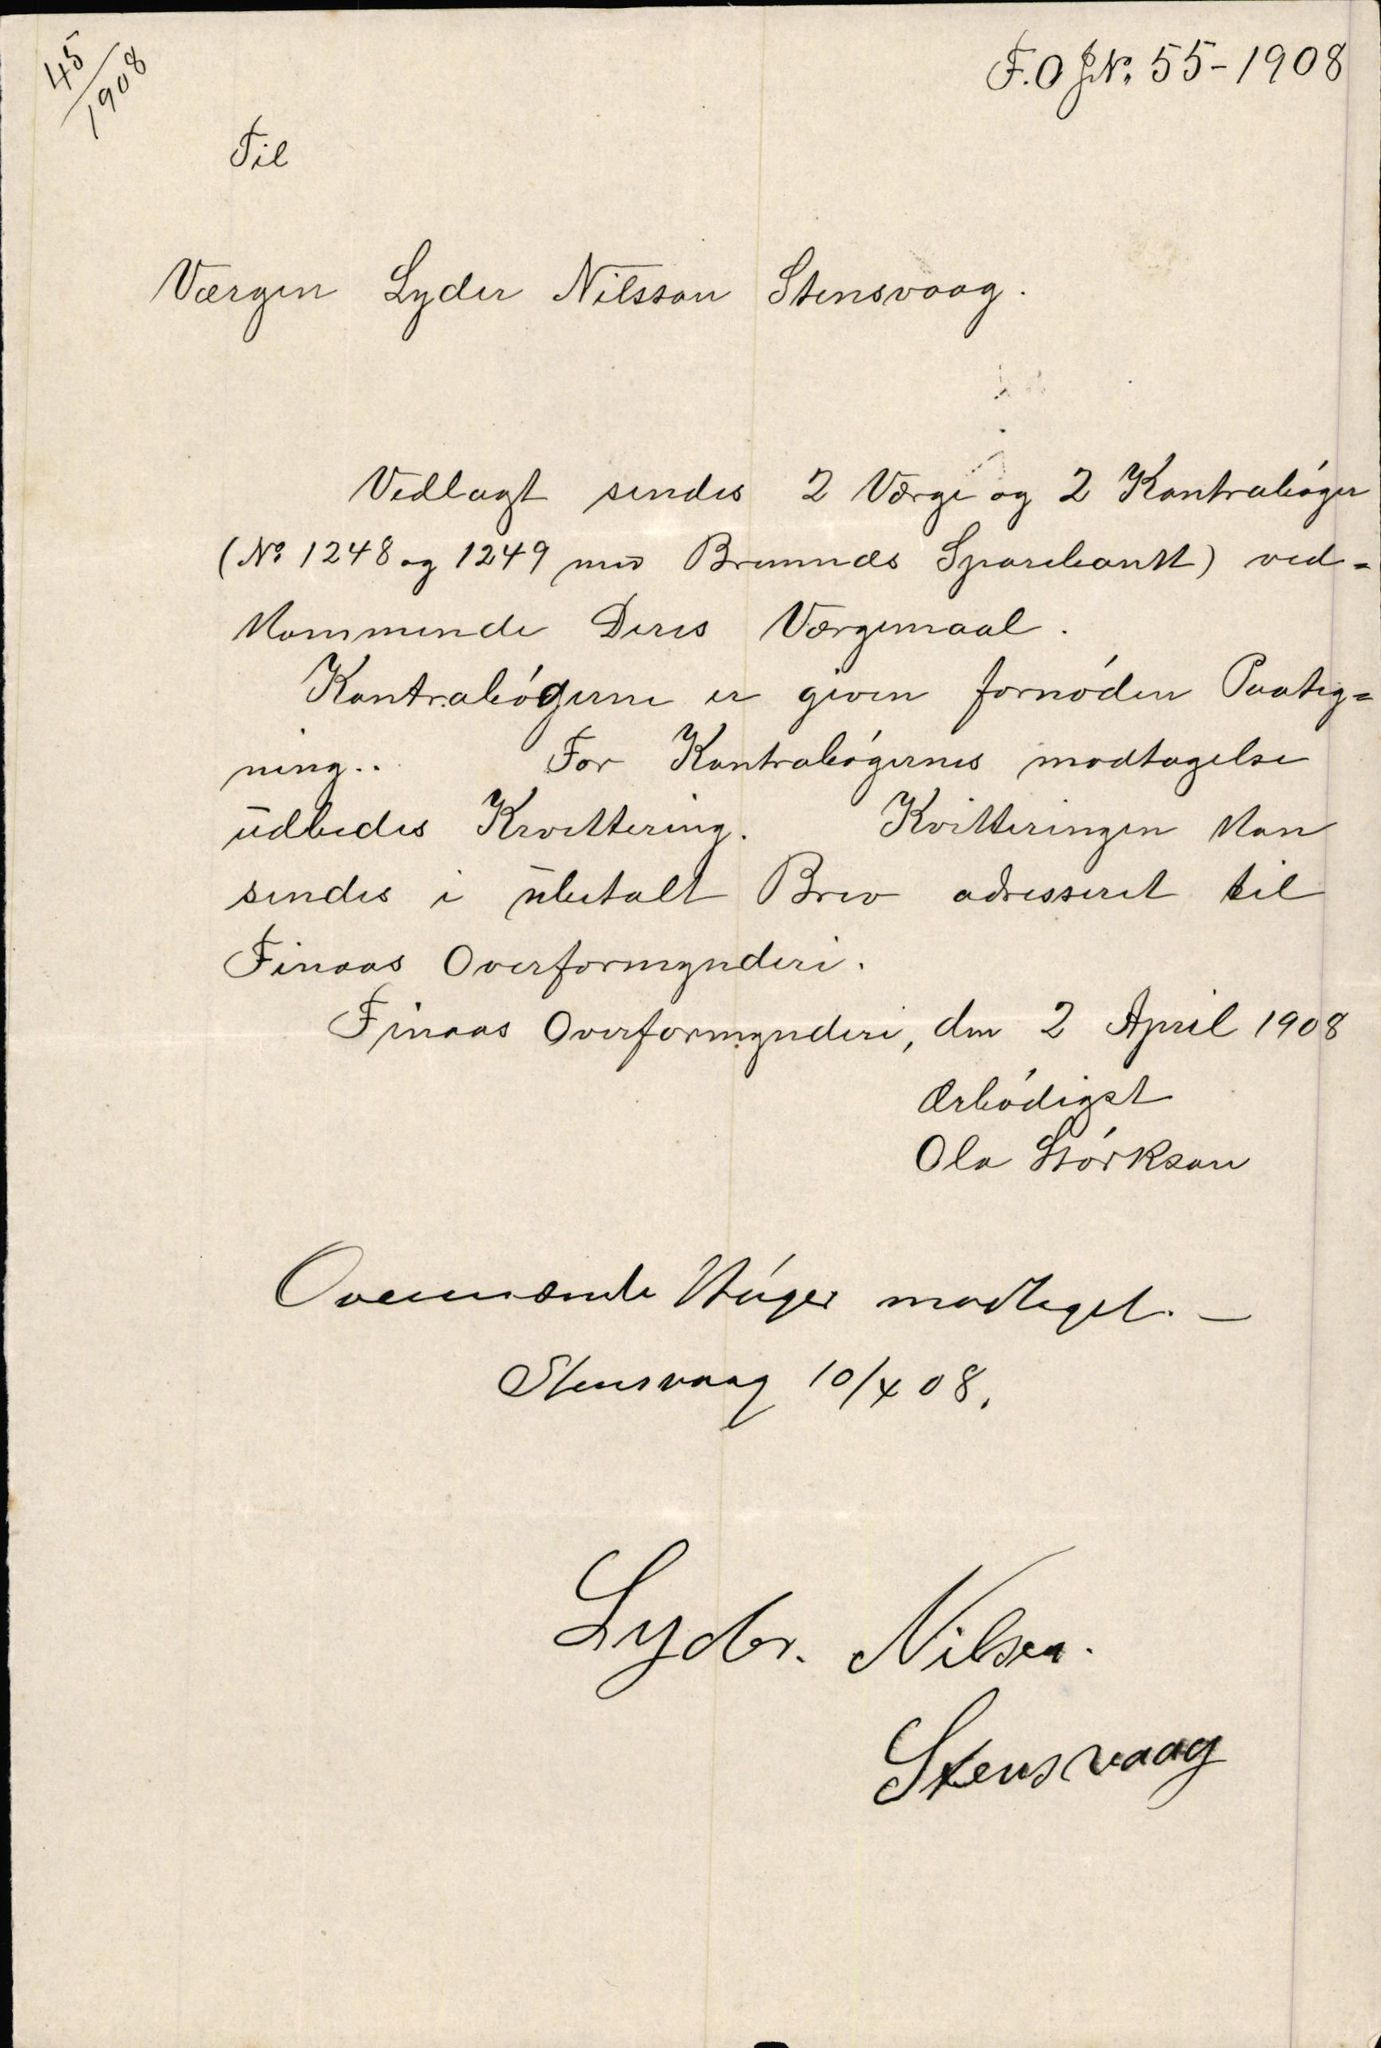 45/1908
F.O.J.No. 55-1908
Til
Værgen Lyder Nilsson Stensvaag.
Vedlagt sendes 2 Værge og 2 Kontrabóger
(No 1248 og 1249 med Bremnæs Sparebank) ved=
kommende Deres Værgemaal.
Kontrabógerne er given fornóden Paateg=
ning.. For Kontrabógernes modtagelse
udbedes Kvittering. Kvitteringen kan
sendes i ubetalt Brev adresseret til
Finaas Overformynderi.
Finaas Overformynderi, den 2 April 1908
Ærbódigst
Ola Störkson
Ovennævnte Bóger modtaget. —
Stensvaag 10/4 08.
Lyder. Nilsen.
Stensvaag